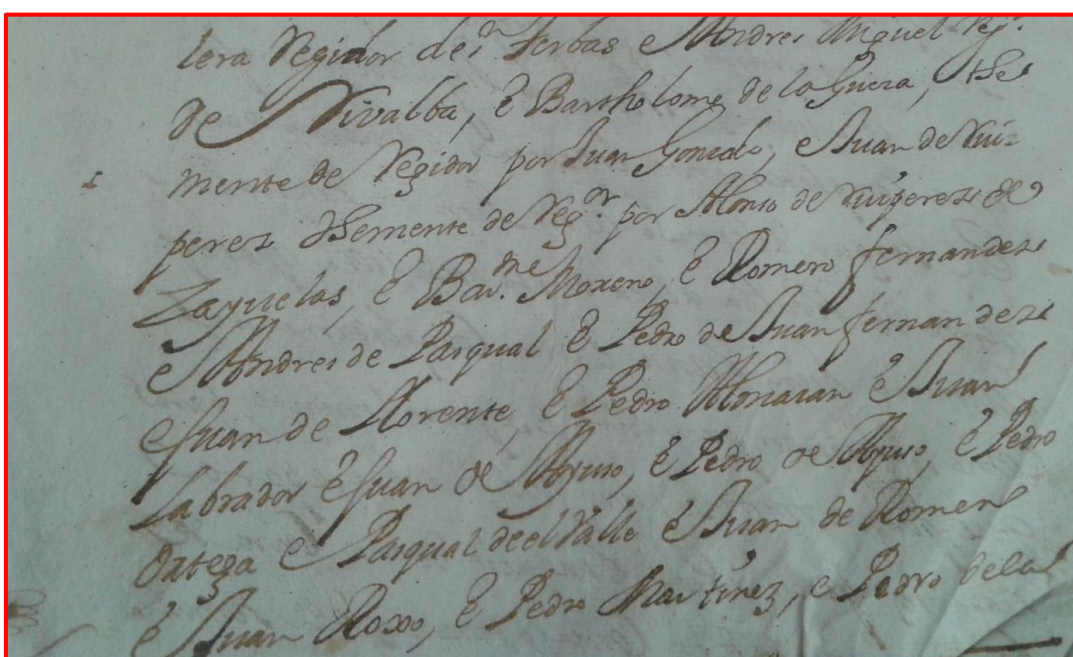 lera Regidor de sn Ierbas e Andres Miguel Regr
de Vivalba, e Bartholome de la Guera, the
niente de Regidor por Juan Gonzalo, e Juan de Rui
perez theniente de Regor por Alonso de Ruiperez de
Zayuelas, e Barme Moreno, e Romero fernandez
e Andres de Pasqual e Pedro de Juan fernandez
e Juan de Llorente, e Pedro e Juan
Labrador e Juan de Ayuso, e Pedro de Ayuso, e Pedro
Ortega e Pasqual de el Valle e Juan de Romero
e Juan Roxo, e Pedro Martinez, e Pedro de la